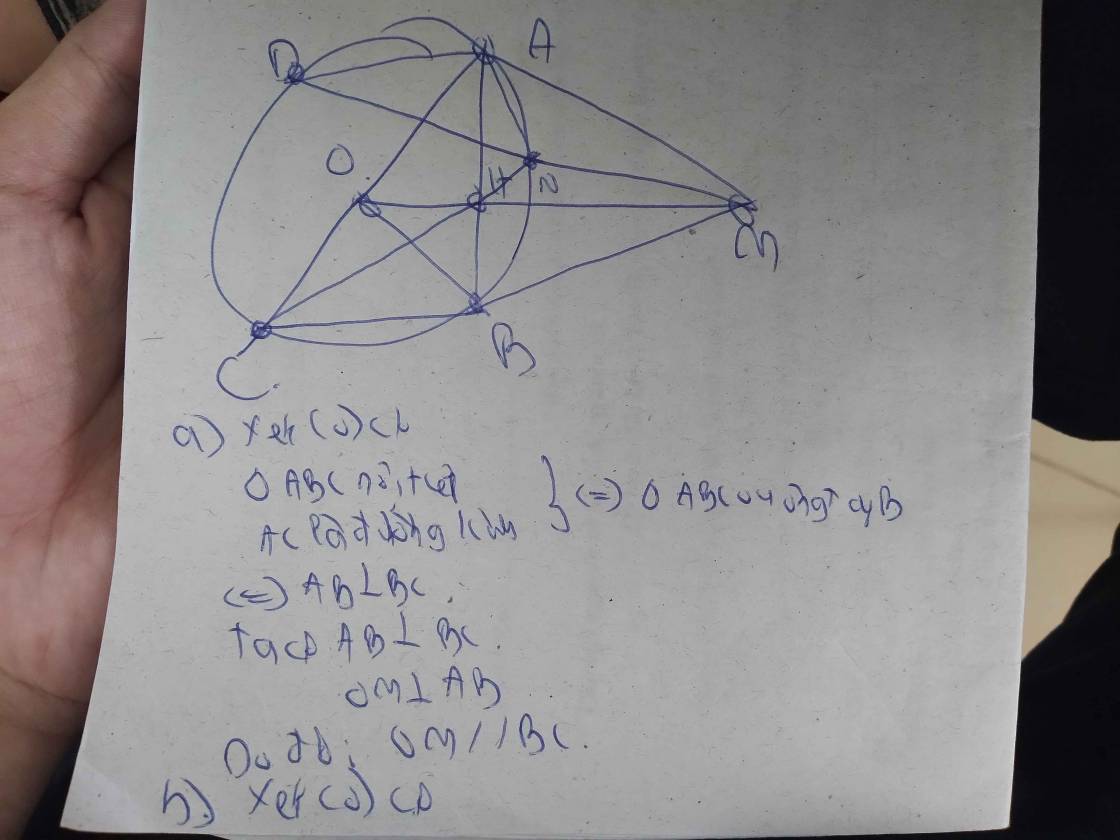 D
A
O
H
N
M
B
C
a) Xét (O) có
Δ ABC nội tiếp
AC là đường kính
} (=) Δ ABC vuông tại B
(=) AB ⊥ BC.
ta có AB ⊥ BC.
OM ⊥ AB
Do đó: OM // BC.
b) Xét (O) có